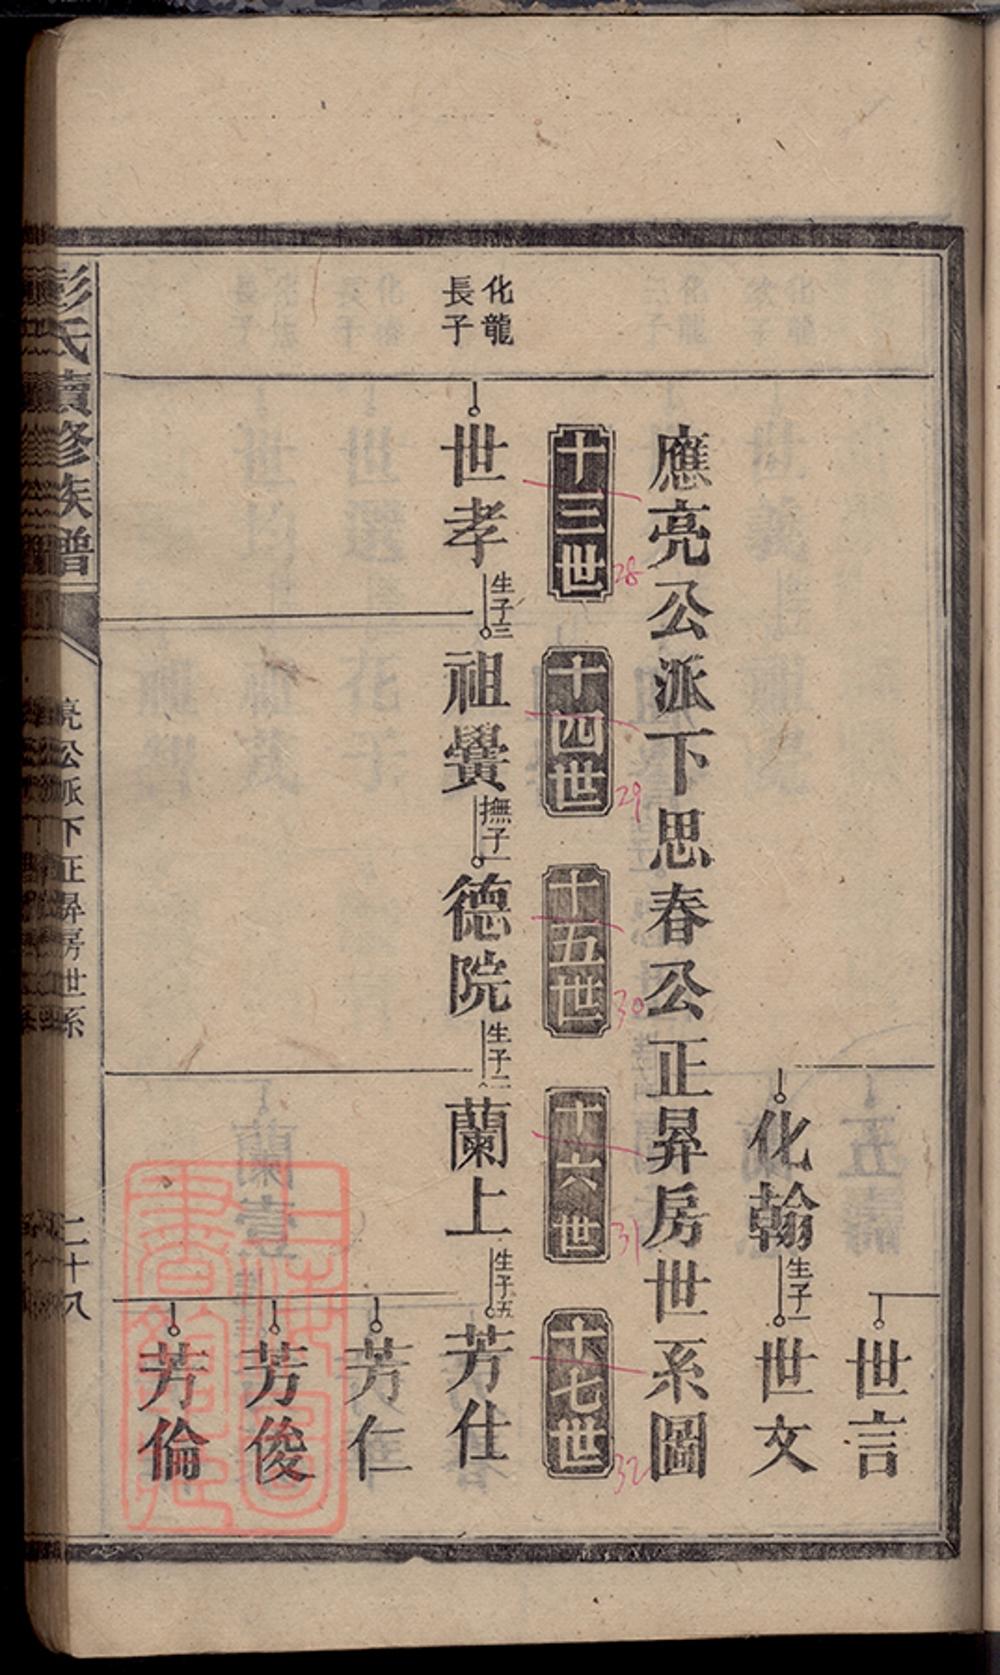 世言
化翰 生子一 世文
應亮公派下思春公正昇房世系圖
十三世 28
十四世 29
十五世 30
十六世 31
十七世 32
化龍
長子
世孝 生子三 祖黌 撫子一 德院 生子二 蘭上 生子五 芳仕
芳仁
芳俊
芳倫
彭氏續修族譜
亮公派下正昇房世系
二十八
上海圖
書館藏